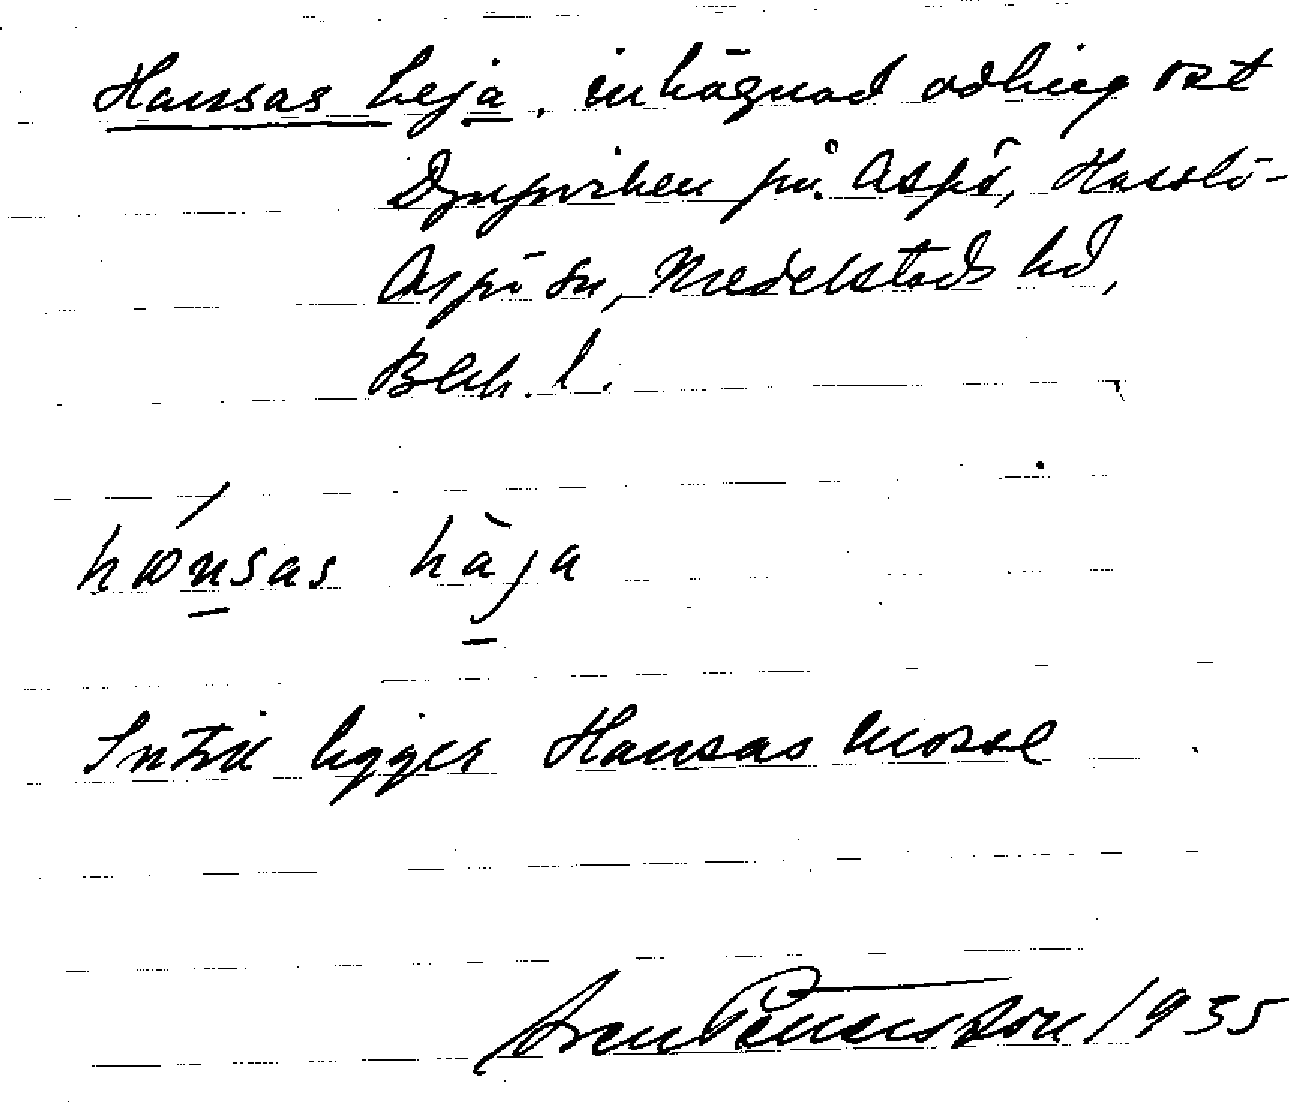 Hansas heja, inhägnad odling ost
Djupviken på Aspö, Hasslö-
Aspö sn, Medelstads hd,
Blek. l.
hansas häja
Intill ligger Hansas mosse
Sven Pettersson / 1935